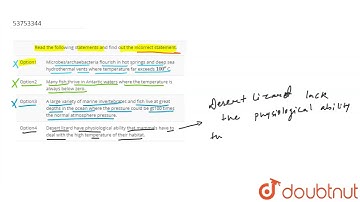 53753344
Read the following statements and find out the incorrect statement.
Option1 Microbes/archaebacteria flourish in hot springs and deep sea
hydrothermal vents where temperature far exceeds 100° C.
Option2 Many fish thrive in Antarctic waters where the temperature is
always below zero.
Option3 A large variety of marine invertebrates and fish live at great
depths in the ocean where the pressure could be gt100 times
the normal atmosphere pressure.
Option4 Desert lizard have physiological ability that mammals have to
deal with the high temperature of their habitat.
Desert lizard lack
the physiological ability
to
doubtnut